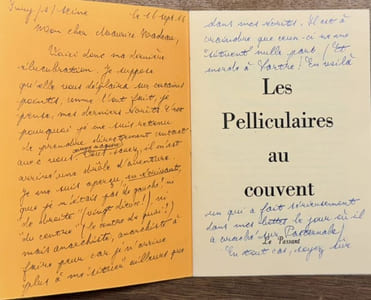 /s/ Seine le 16 sept.
Mon cher Maurice Nadeau,
Voici donc ma dernière
élucubration. Je suppose
qu'elle vous déplaira sur certains
points, comme l'ont fait, je
pense, mes derniers écrits. C'est
pourquoi je me suis retenu
de prendre directement contact
avec vous. Vous savez, il m'est
arrivé une drôle d'aventure.
Je me suis aperçu, en écrivant,
que je n'étais pas "de gauche" ni
de droite (vingt dieux!) ni
du centre (le ventre du !)
mais anarchiste, anarchiste à
faire peur car je n'arrive
plus à me "situer" ailleurs que
dans mes écrits. Il est à
craindre que ceux-ci ne me
situent nulle part! (Et
merde à Sartre! En voilà
Les
Pelliculaires
au
couvent
un qui a fait sérieusement
dans mes bottes le jour où il
a craché sur Pasternak!)
Le Passant
En tout cas, soyez sûr